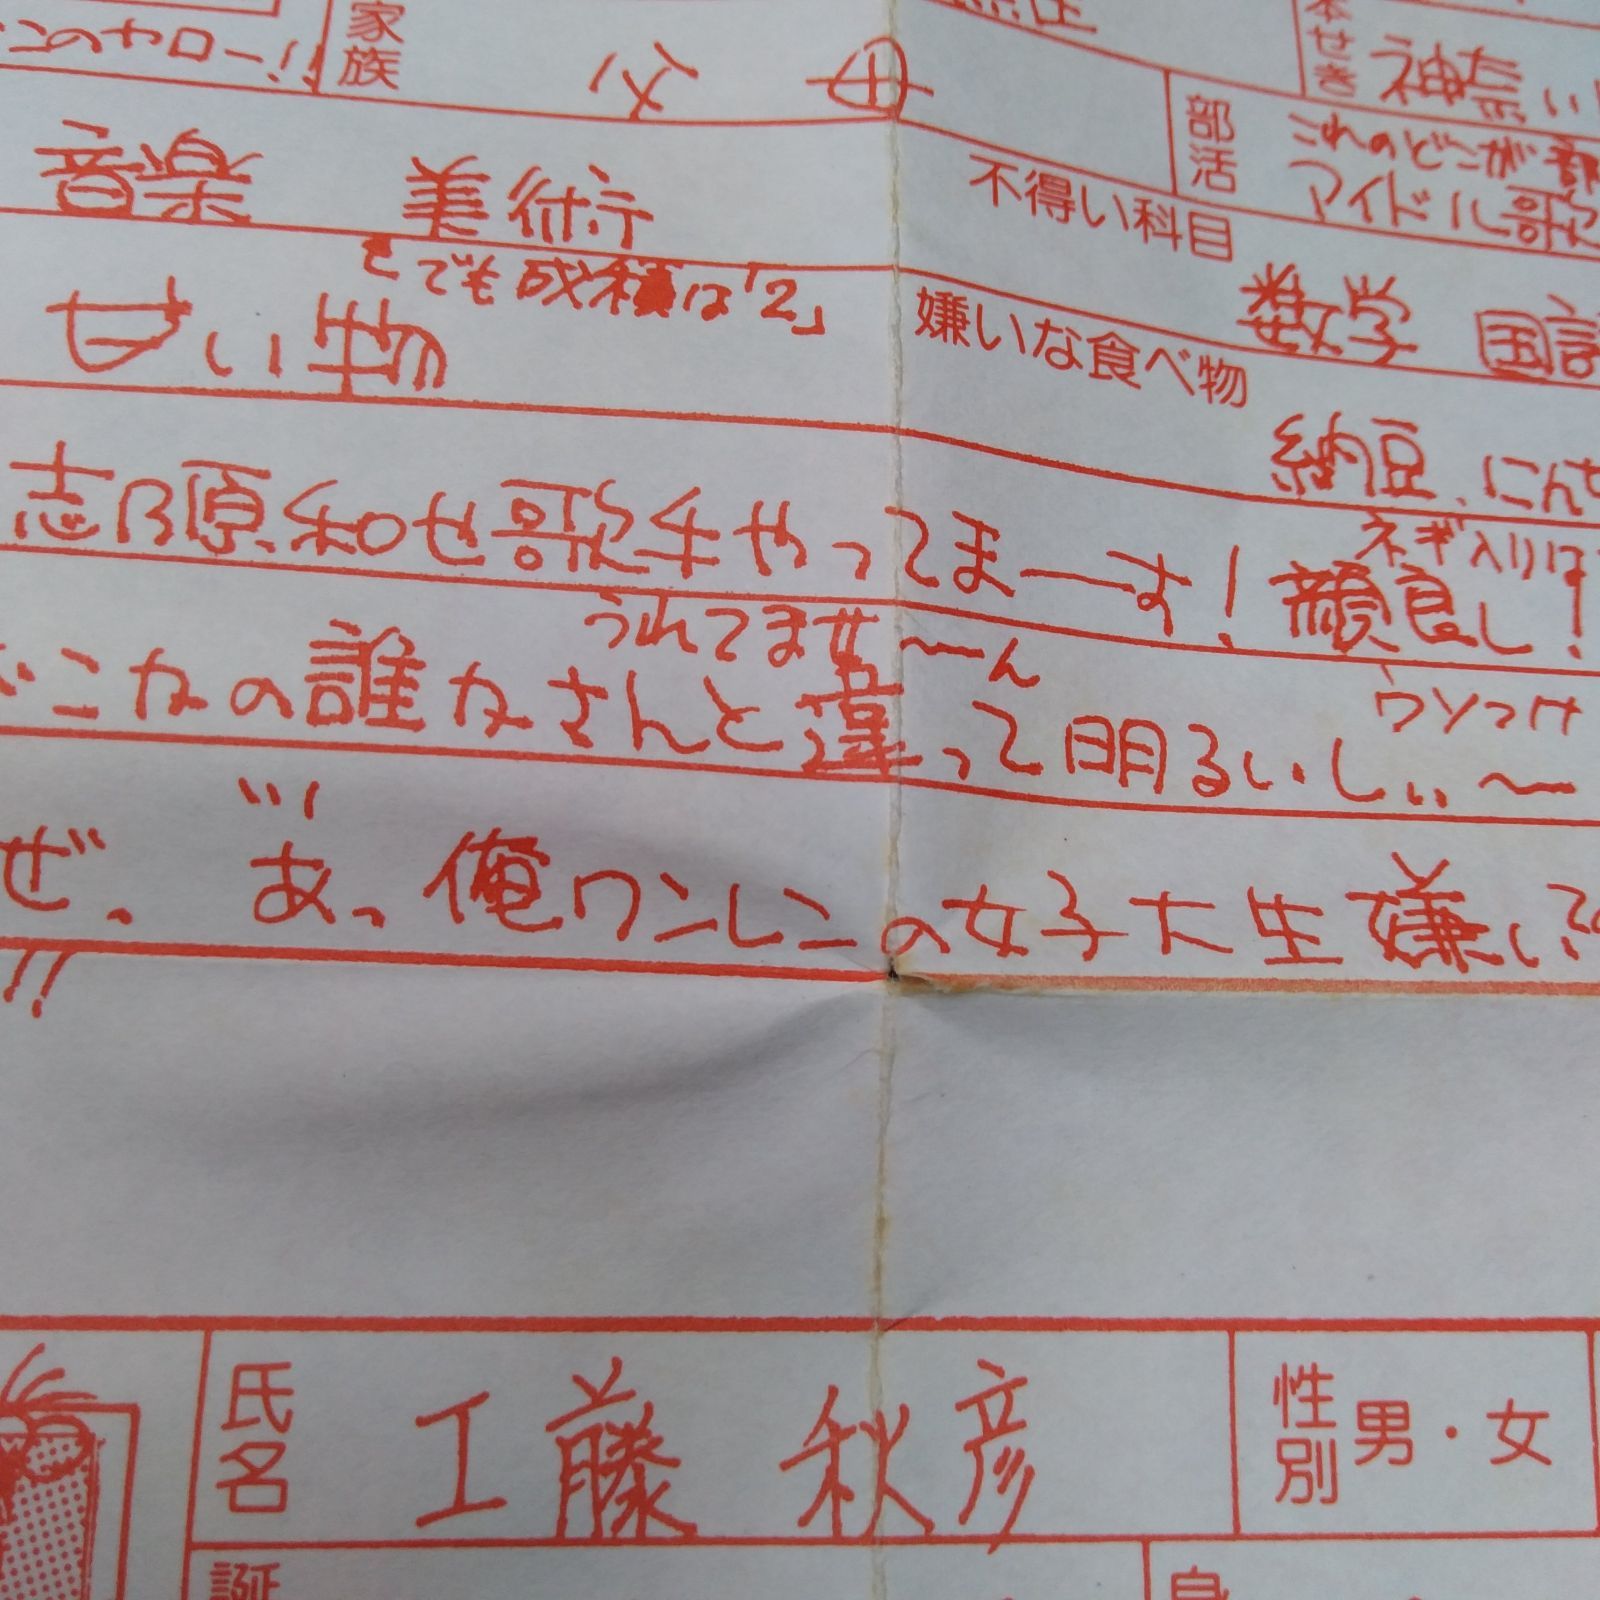 このヤロー!!
家族
父 母
本せき
神奈い
部活
これのどこが
アイドル歌
音楽 美術
でも成積は「2」
不得い科目
数学 国語
甘い物
嫌いな食べ物
納豆、にん
ネギ入りは
志乃原和也歌手やってまーす!顔良し!
うれてませ〜ん
ウソつけ
こかの誰かさんと違って明るいしぃ〜
ぜ、あっ俺ワンレンの女子大生嫌い
!!
氏名
工藤 秋彦
性別
男・女
誕
身